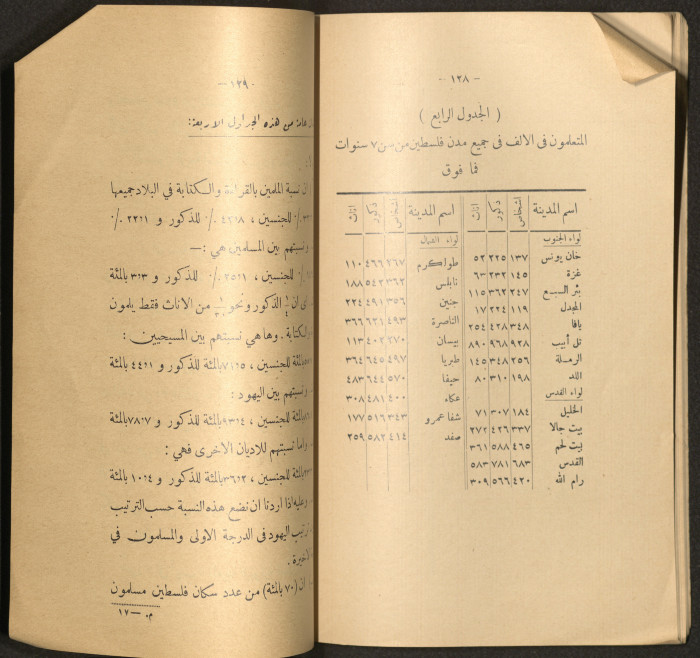 — ١٢٨ —
( الجدول الرابع )
المتعلمون فى الالف فى جميع مدن فلسطين من سن ٧ سنوات
فما فوق
اسم المدينة اشخاص ذكور اناث
لواء الجنوب
خان يونس ١٣٧ ٢٢٥ ٥٢
غزة ١٤٥ ٢٣٢ ٦٣
بئر السبع ٢٤٧ ٣٦٢ ١١٥
المجدل ١١٩ ٢٢٤ ١٧
يافا ٣٤٨ ٤٢٨ ٢٥٤
تل أبيب ٩٢٨ ٩٦٨ ٨٩٠
الرملة ٢٥٦ ٣٤٨ ١٤٥
اللد ١٩٨ ٣١٠ ٨٠
لواء القدس
الخليل ١٨٤ ٣٠٧ ٧١
بيت جالا ٣٣٧ ٤٢٦ ٢٧٢
بيت لحم ٤٦٥ ٥٨٨ ٣٦١
القدس ٦٨٣ ٧٨١ ٥٨٣
رام الله ٤٢٠ ٥٦٦ ٣٠٩
اسم المدينة اشخاص ذكور اناث
لواء الشمال
طولكرم ٢٦٧ ٤٦٦ ١١٠
نابلس ٣٦٢ ٥٤٢ ١٨٨
جنين ٣٥٦ ٤٩١ ٢٢٤
الناصرة ٤٩٣ ٦٢١ ٣٦٦
بيسان ٢٧٠ ٤٠٢ ١١٣
طبريا ٤٩٧ ٦٤٥ ٣٦٤
حيفا ٥٧٠ ٦٤٤ ٤٨٣
عكاه ٤٠٠ ٤٨١ ٣٠٨
شفا عمرو ٣٤٣ ٥١٦ ١٧٧
صفد ٤١٤ ٥٨٢ ٢٥٩
— ١٢٩ —
عامة من هذه الجداول الاربعة:
نسبة الملمين بالقراءة والكتابة في البلاد جميعها
للجنسين ، ٤٢٫٨ ٪ للذكور و ٢٢٫١ ٪
ونسبتهم بين المسلمين هي :—
للجنسين ، ٢٥٫١ ٪ للذكور و ٣٫٣ بالمئة
ان ¼ الذكور ونحو من الاناث فقط يلمون
الكتابة . وها هي نسبتهم بين المسيحيين :
بالمئة للجنسين ، ٧١٫٥ بالمئة للذكور و ٤٤٫١ بالمئة
ونسبتهم بين اليهود :
بالمئة للجنسين ، ٩٣٫٤ بالمئة للذكور و ٧٨٫٧ بالمئة
واما نسبتهم للاديان الاخرى فهي :
بالمئة للجنسين ، ٣٦٫٢ بالمئة للذكور و ١٠٫٤ بالمئة
وعليه اذا اردنا ان نضع هذه النسبة حسب الترتيب
ترتيب اليهود فى الدرجة الاولى والمسلمون في
الاخيرة .
ان (٧٠ بالمئة) من عدد سكان فلسطين مسلمون
م. — ١٧